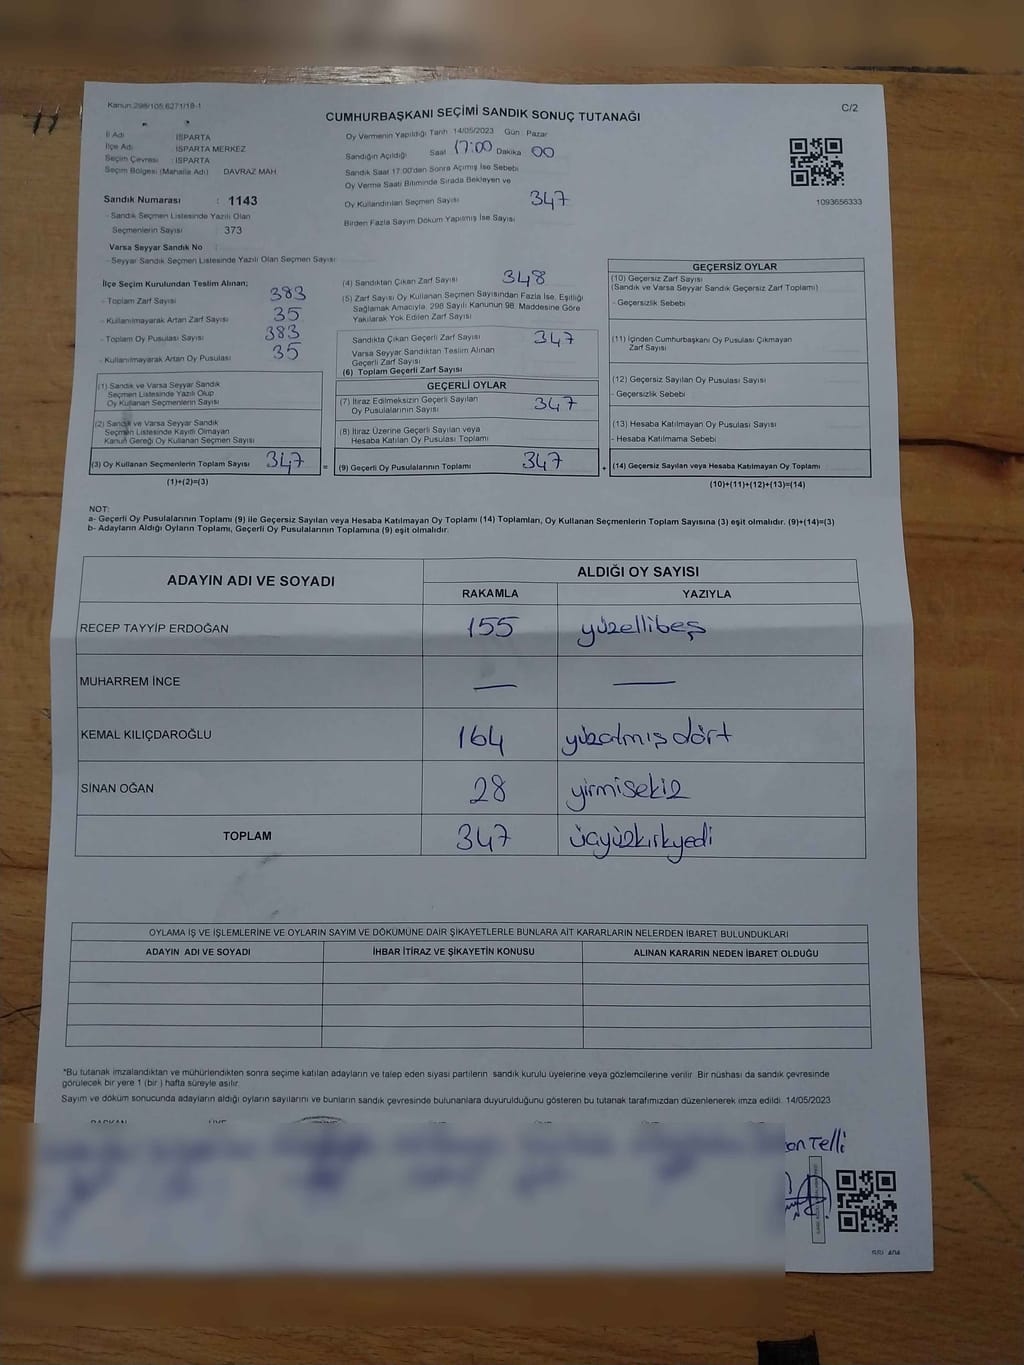 Kanun:298/105,6271/18-1
CUMHURBAŞKANI SEÇİMİ SANDIK SONUÇ TUTANAĞI
C/2
İl Adı : ISPARTA
İlçe Adı : ISPARTA MERKEZ
Seçim Çevresi : ISPARTA
Seçim Bölgesi (Mahalle Adı) DAVRAZ MAH.
Sandık Numarası : 1143
- Sandık Seçmen Listesinde Yazılı Olan
Seçmenlerin Sayısı : 373
Varsa Seyyar Sandık No :
- Seyyar Sandık Seçmen Listesinde Yazılı Olan Seçmen Sayısı:
Oy Vermenin Yapıldığı Tarih 14/05/2023 Gün : Pazar
Sandığın Açıldığı Saat 17:00 Dakika 00
Sandık Saat 17:00'den Sonra Açımış İse Sebebi
Oy Verme Saati Bitiminde Sırada Bekleyen ve
Oy Kullandırılan Seçmen Sayısı 347
Birden Fazla Sayım Döküm Yapılmış İse Sayısı
1093656333
İlçe Seçim Kurulundan Teslim Alınan;
- Toplam Zarf Sayısı 383
- Kullanılmayarak Artan Zarf Sayısı 35
- Toplam Oy Pusulası Sayısı 383
- Kullanılmayarak Artan Oy Pusulası 35
(1) Sandık ve Varsa Seyyar Sandık
Seçmen Listesinde Yazılı Olup
Oy Kullanan Seçmenlerin Sayısı
(2) Sandık ve Varsa Seyyar Sandık
Seçmen Listesinde Kayıtlı Olmayan
Kanun Gereği Oy Kullanan Seçmen Sayısı
(3) Oy Kullanan Seçmenlerin Toplam Sayısı 347
=
(1)+(2)=(3)
(4) Sandıktan Çıkan Zarf Sayısı 348
(5) Zarf Sayısı Oy Kullanan Seçmen Sayısından Fazla İse, Eşitliği
Sağlamak Amacıyla, 298 Sayılı Kanunun 98. Maddesine Göre
Yakılarak Yok Edilen Zarf Sayısı
Sandıkta Çıkan Geçerli Zarf Sayısı 347
Varsa Seyyar Sandıktan Teslim Alınan
Geçerli Zarf Sayısı
(6) Toplam Geçerli Zarf Sayısı
GEÇERLİ OYLAR
(7) İtiraz Edilmeksizin Geçerli Sayılan
Oy Pusulalarının Sayısı 347
(8) İtiraz Üzerine Geçerli Sayılan veya
Hesaba Katılan Oy Pusulası Toplamı
(9) Geçerli Oy Pusulalarının Toplamı 347
+
GEÇERSİZ OYLAR
(10) Geçersiz Zarf Sayısı
(Sandık ve Varsa Seyyar Sandık Geçersiz Zarf Toplamı)
- Geçersizlik Sebebi
(11) İçinden Cumhurbaşkanı Oy Pusulası Çıkmayan
Zarf Sayısı
(12) Geçersiz Sayılan Oy Pusulası Sayısı
- Geçersizlik Sebebi
(13) Hesaba Katılmayan Oy Pusulası Sayısı
- Hesaba Katılmama Sebebi
(14) Geçersiz Sayılan veya Hesaba Katılmayan Oy Toplamı
(10)+(11)+(12)+(13)=(14)
NOT:
a- Geçerli Oy Pusulalarının Toplamı (9) ile Geçersiz Sayılan veya Hesaba Katılmayan Oy Toplamı (14) Toplamları, Oy Kullanan Seçmenlerin Toplam Sayısına (3) eşit olmalıdır. (9)+(14)=(3)
b- Adayların Aldığı Oyların Toplamı, Geçerli Oy Pusulalarının Toplamına (9) eşit olmalıdır.
ADAYIN ADI VE SOYADI ALDIĞI OY SAYISI
RAKAMLA YAZIYLA
RECEP TAYYİP ERDOĞAN 155 yüzellibeş
MUHARREM İNCE — —
KEMAL KILIÇDAROĞLU 164 yüzatmışdört
SİNAN OĞAN 28 yirmisekiz
TOPLAM 347 üçyüzkırkyedi
OYLAMA İŞ VE İŞLEMLERİNE VE OYLARIN SAYIM VE DÖKÜMÜNE DAİR ŞİKAYETLERLE BUNLARA AİT KARARLARIN NELERDEN İBARET BULUNDUKLARI
ADAYIN ADI VE SOYADI İHBAR İTİRAZ VE ŞİKAYETİN KONUSU ALINAN KARARIN NEDEN İBARET OLDUĞU
*Bu tutanak imzalandıktan ve mühürlendikten sonra seçime katılan adayların ve talep eden siyasi partilerin sandık kurulu üyelerine veya gözlemcilerine verilir. Bir nüshası da sandık çevresinde
görülecek bir yere 1 (bir ) hafta süreyle asılır.
Sayım ve döküm sonucunda adayların aldığı oyların sayılarını ve bunların sandık çevresinde bulunanlara duyurulduğunu gösteren bu tutanak tarafımızdan düzenlenerek imza edildi. 14/05/2023
BAŞKAN ÜYE
Telli